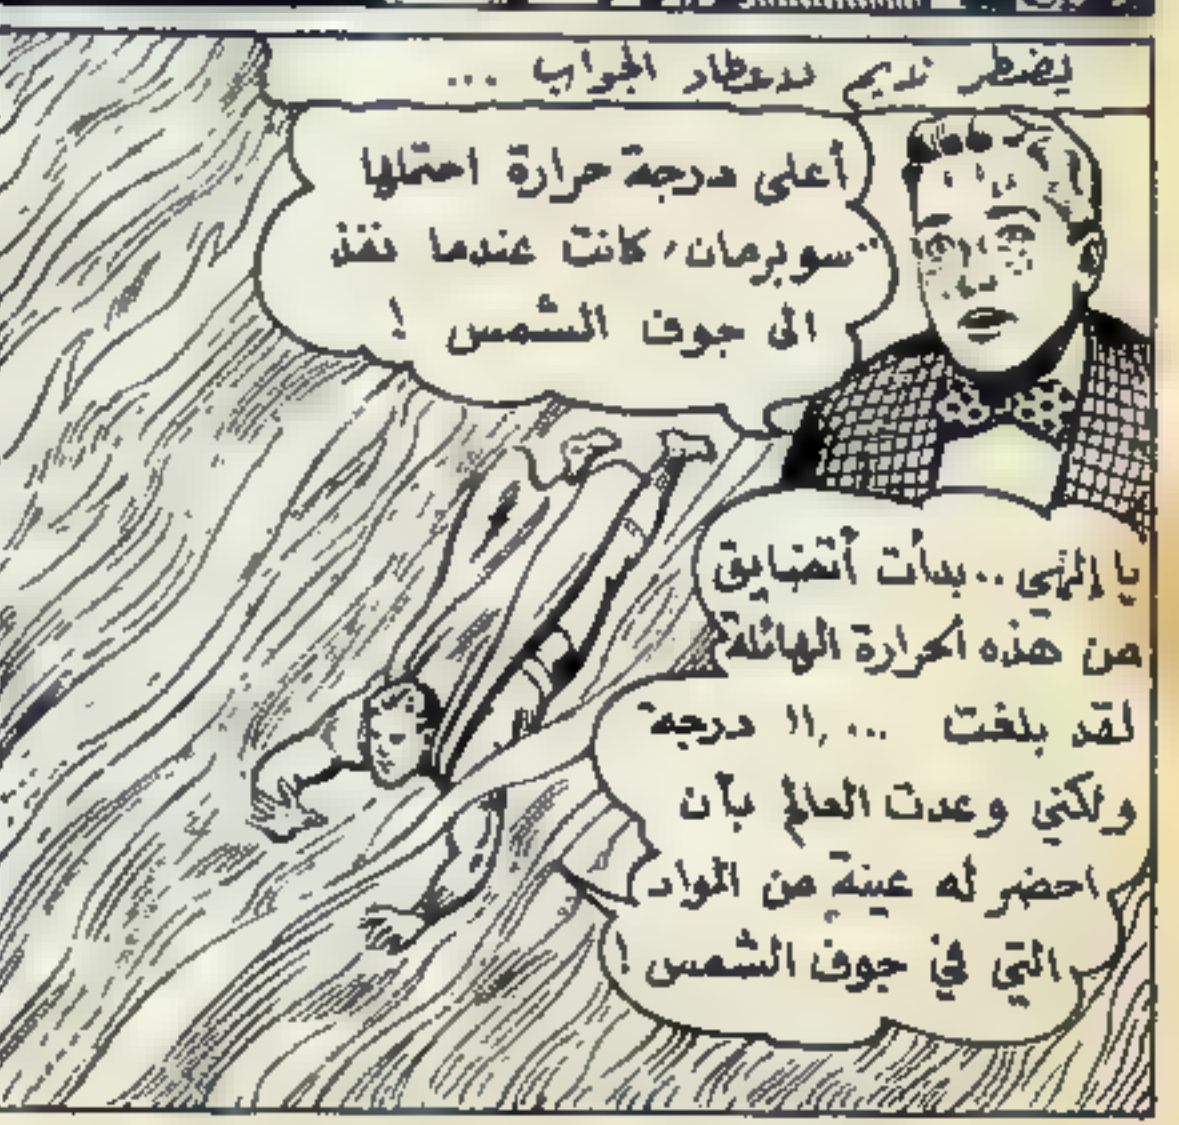 يضطر نديم لإعطاء الجواب ...
أعلى درجة حرارة احتملها
"سوبرمان" كانت عندما نفذ
الى جوف الشمس !
يا إلهي .. بدأت أتضايق
من هذه الحرارة الهائلة
لقد بلغت ١١,٠٠٠ درجة
ولكني وعدت العالم بأن
احضر له عينة من المواد
التي في جوف الشمس !